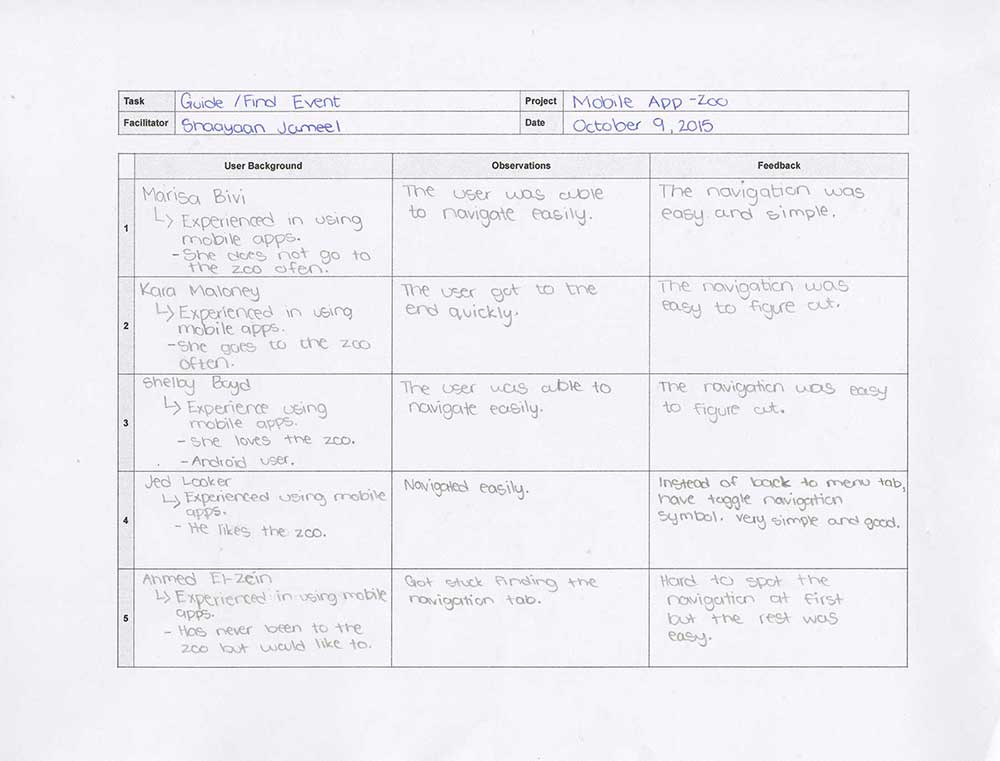 Task Guide /Find Event Project Mobile App -Zoo
Facilitator Shaayaan Jameel Date October 9, 2015
User Background Observations Feedback
1
Marisa Bivi
↳ Experienced in using
mobile apps.
- She does not go to
the zoo ofen.
The user was able
to navigate easily.
The navigation was
easy and simple.
2
Kara Maloney
↳ Experienced in using
mobile apps.
- She goes to the zoo
often.
The user got to the
end quickly.
The navigation was
easy to figure out.
3
Shelby Boyd
↳ Experience using
mobile apps.
- She loves the zoo.
- Android user.
The user was able to
navigate easily.
The navigation was easy
to figure out.
4
Jed Looker
↳ Experienced using mobile
apps.
- He likes the zoo.
Navigated easily.
Instead of back to menu tab,
have toggle navigation
symbol. Very simple and good.
5
Ahmed El-Zein
↳ Experienced in using mobile
apps.
- Has never been to the
zoo but would like to.
Got stuck finding the
navigation tab.
Hard to spot the
navigation at first
but the rest was
easy.